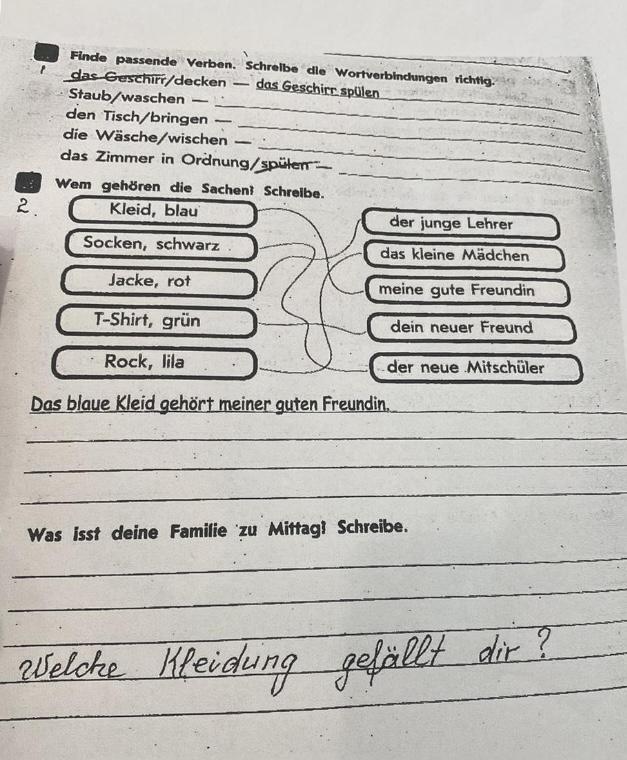 Finde passende Verben. Schreibe die Wortverbindungen richtig.
1
das Geschirr/decken — das Geschirr spülen
Staub/waschen —
den Tisch/bringen —
die Wäsche/wischen —
das Zimmer in Ordnung/spülen —
Wem gehören die Sachen? Schreibe.
2.
Kleid, blau
Socken, schwarz
Jacke, rot
T-Shirt, grün
Rock, lila
der junge Lehrer
das kleine Mädchen
meine gute Freundin
dein neuer Freund
der neue Mitschüler
Das blaue Kleid gehört meiner guten Freundin.
Was isst deine Familie zu Mittag? Schreibe.
Welche Kleidung gefällt dir?